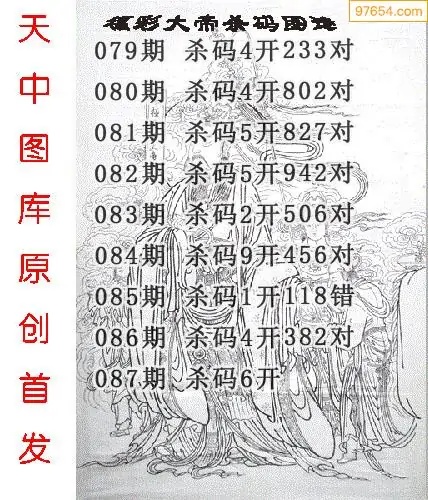 97654.com
福彩大帝杀码图谜
079期 杀码4开233对
080期 杀码4开802对
081期 杀码5开827对
082期 杀码5开942对
083期 杀码2开506对
084期 杀码9开456对
085期 杀码1开118错
086期 杀码4开382对
087期 杀码6开
天中图库原创首发